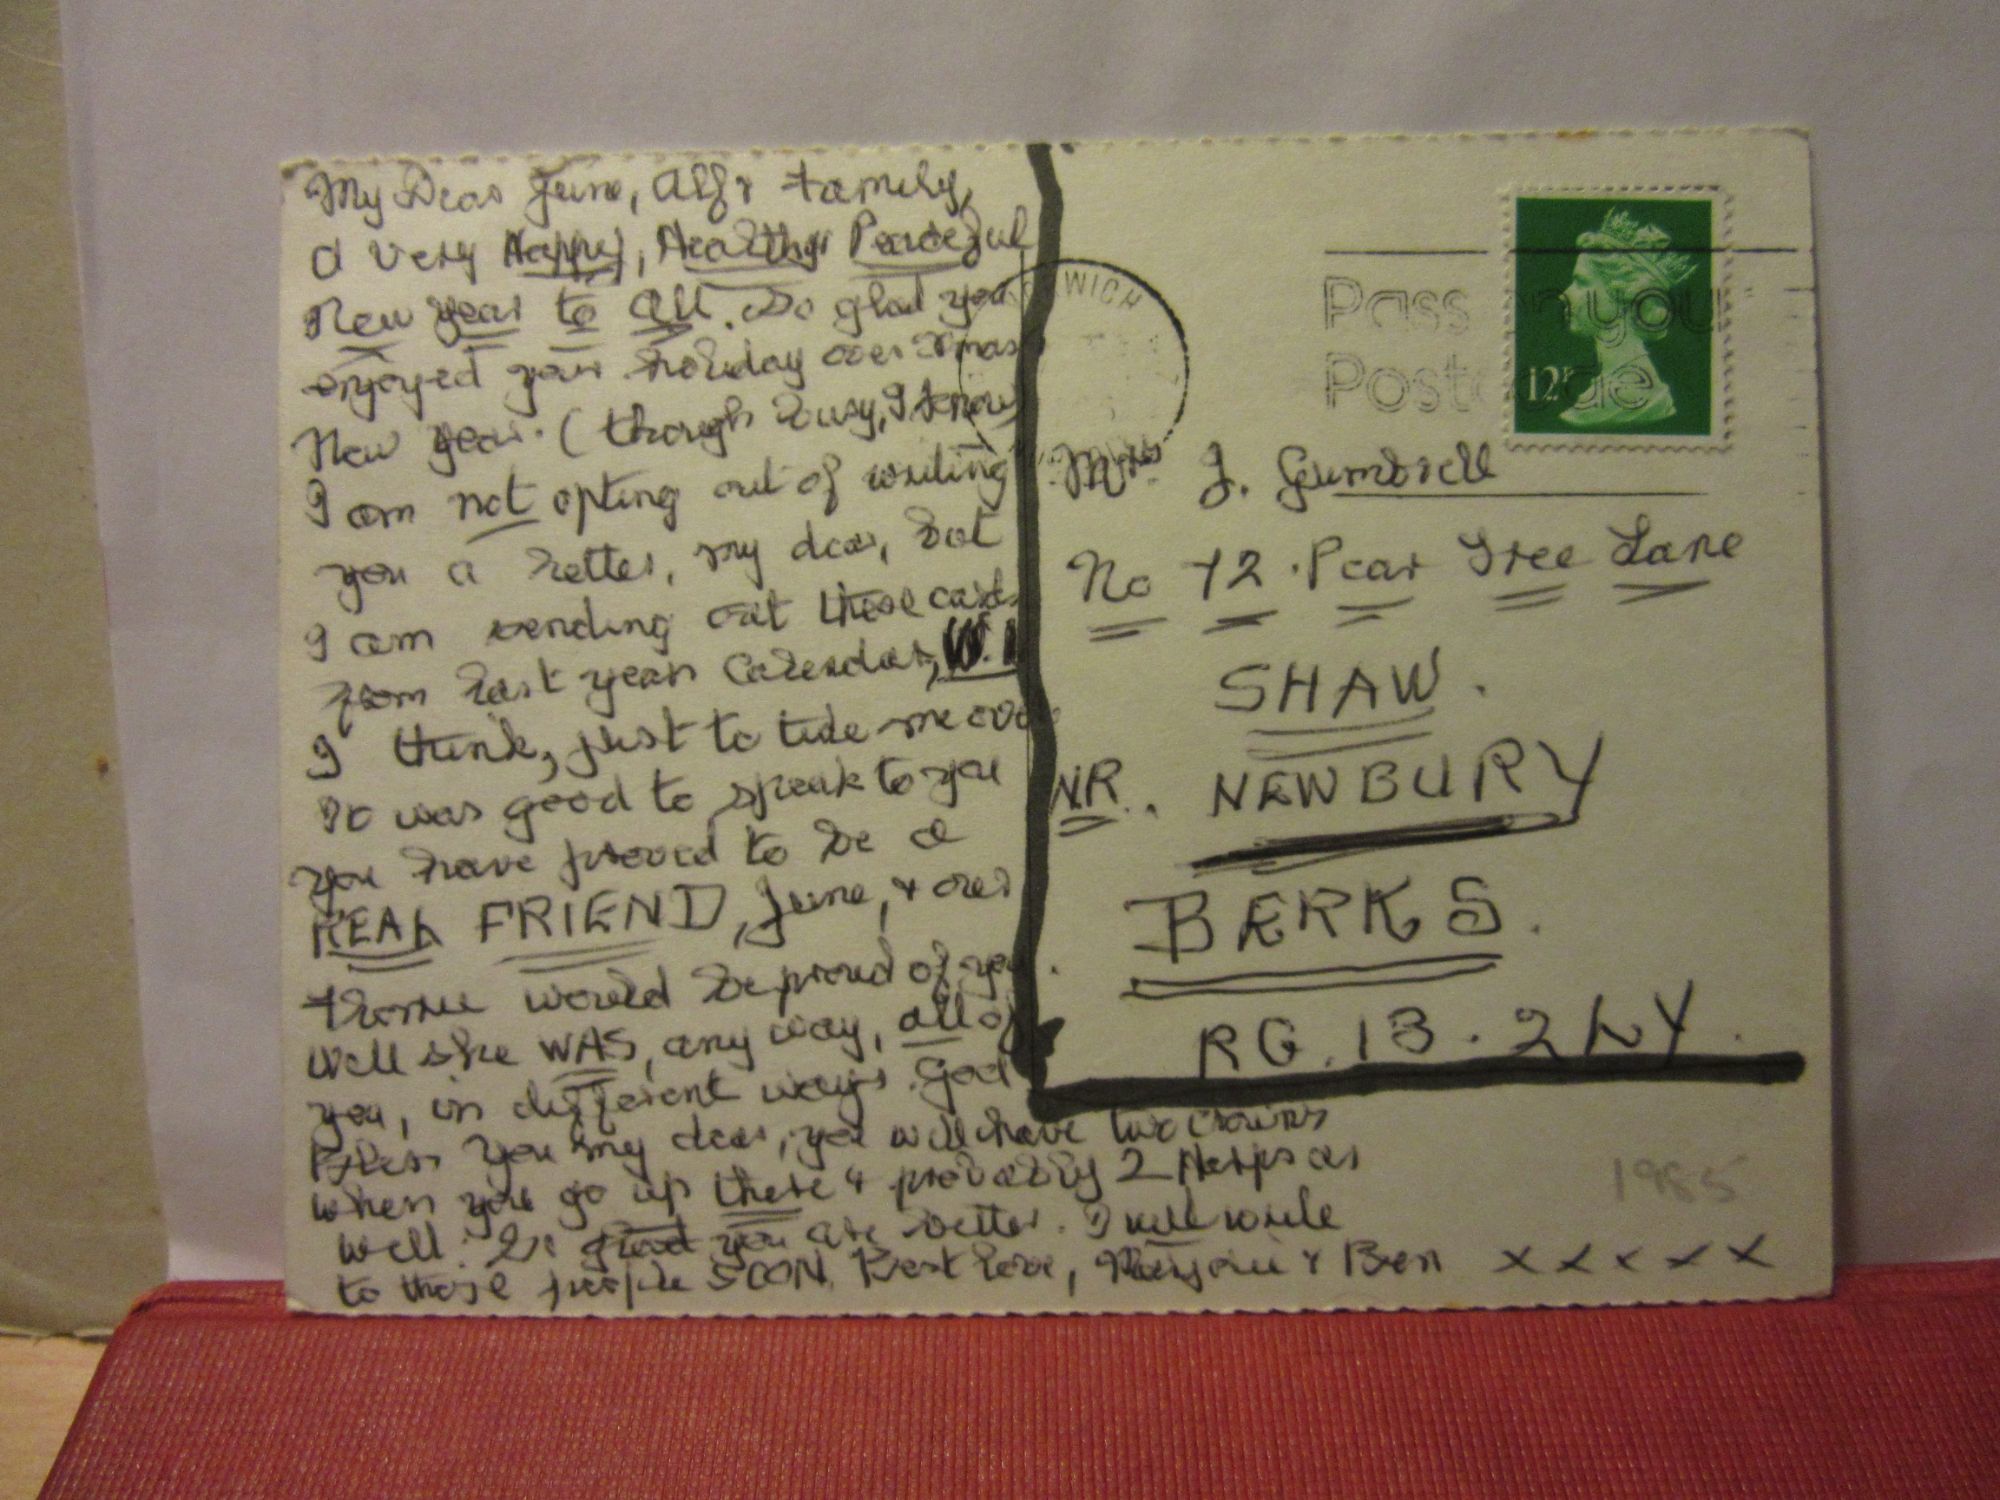 My Dear June, Alf & Family,
a very Happy, Healthy & Peaceful
New year to all. So glad you
enjoyed your holiday over Xmas
New year. (though busy, I know)
I am not opting out of writing
you a letter, my dear, but
I am sending out these cards
from last years Calendar, W.I
I think, just to tide me over
It was good to speak to you
you have proved to be a
REAL FRIEND, June, & our
would be proud of you.
Well she WAS, any way, all of
you, in different ways. God
Bless you my dear, you will have two crowns
when you go up there & probably 2 Harps as
well. So glad you are better. I will write
to those people SOON. Best love, Marjorie & Ben x x x x x
WICH
Pass on your
Postcode
12P
Mrs J. Gumbrell
No 72 Pear Tree Lane
SHAW.
NR. NEWBURY
BERKS.
RG. 13. 2LY.
1985